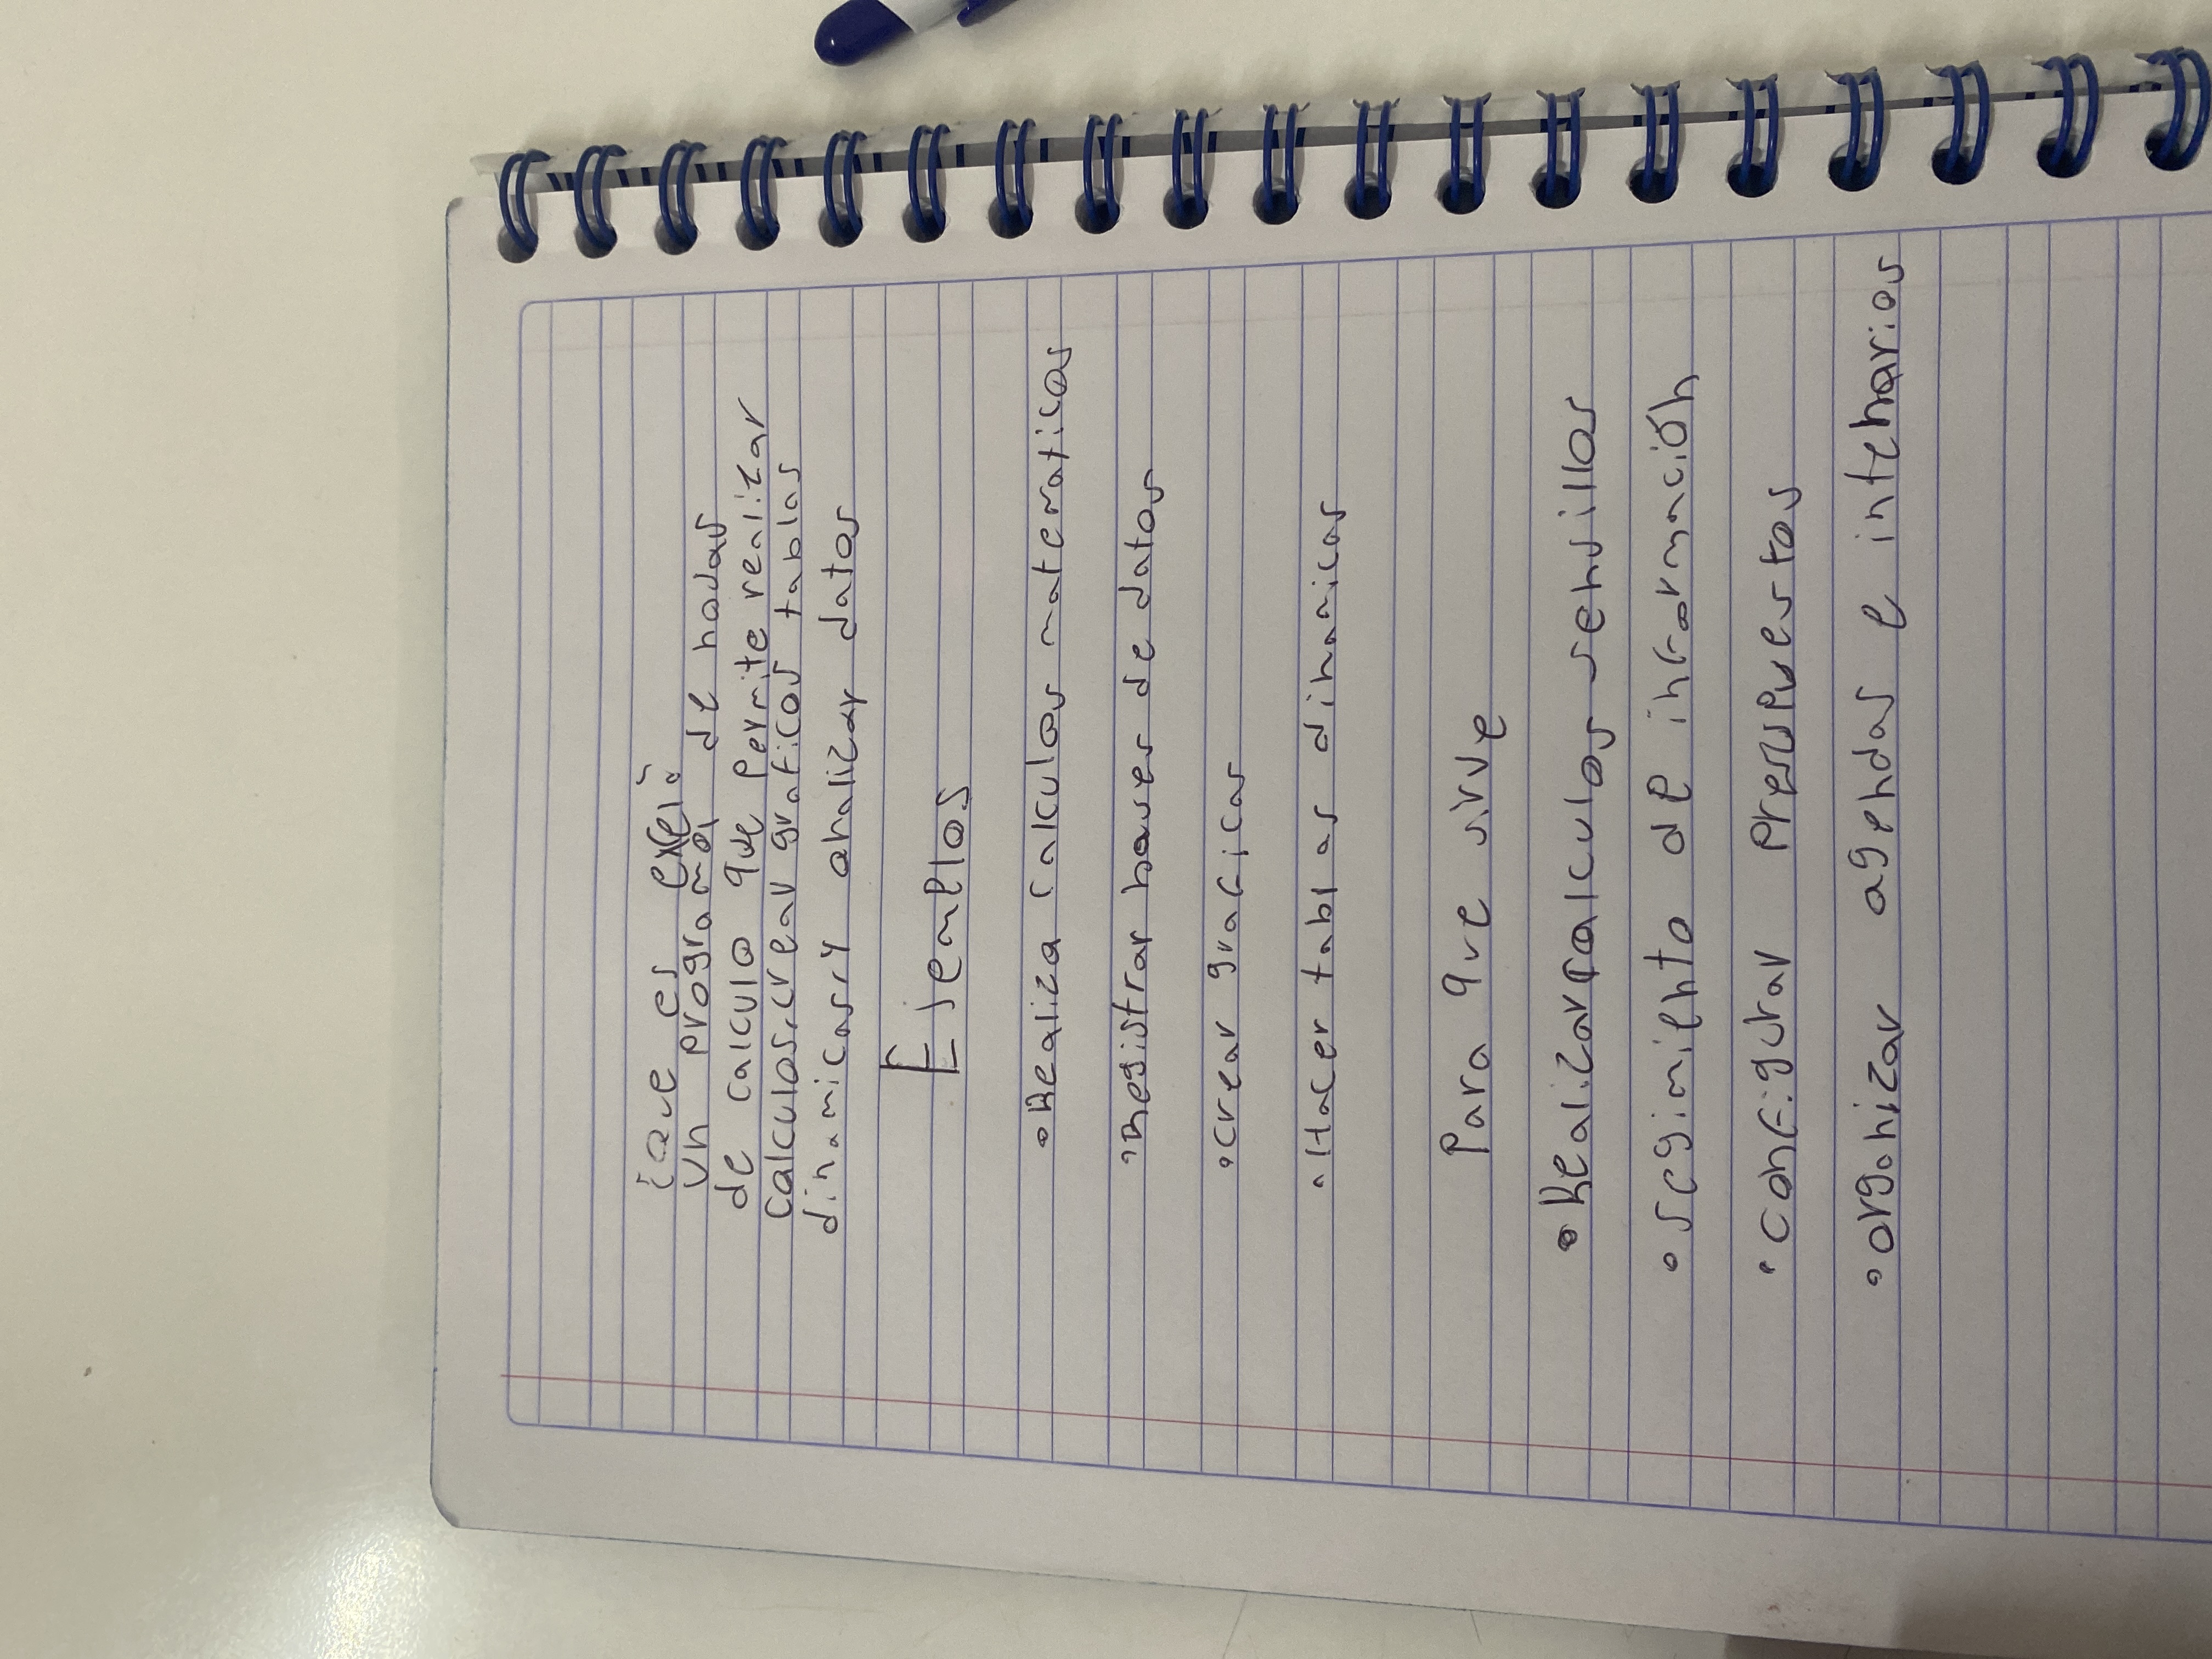 ¿Que es exel?
Un programa de hojas
de calculo que permite realizar
calculos, crear graficos tablas
dinamicas, y analizar datos
Ejemplos
• Realiza calculos matematicos
• Registrar bases de datos
• Crear graficas
• Hacer tablas dinamicas
Para que sirve
• Realizar calculos sensillos
• segimiento de información
• configurar presupuestos
• organizar agendas e intenarios